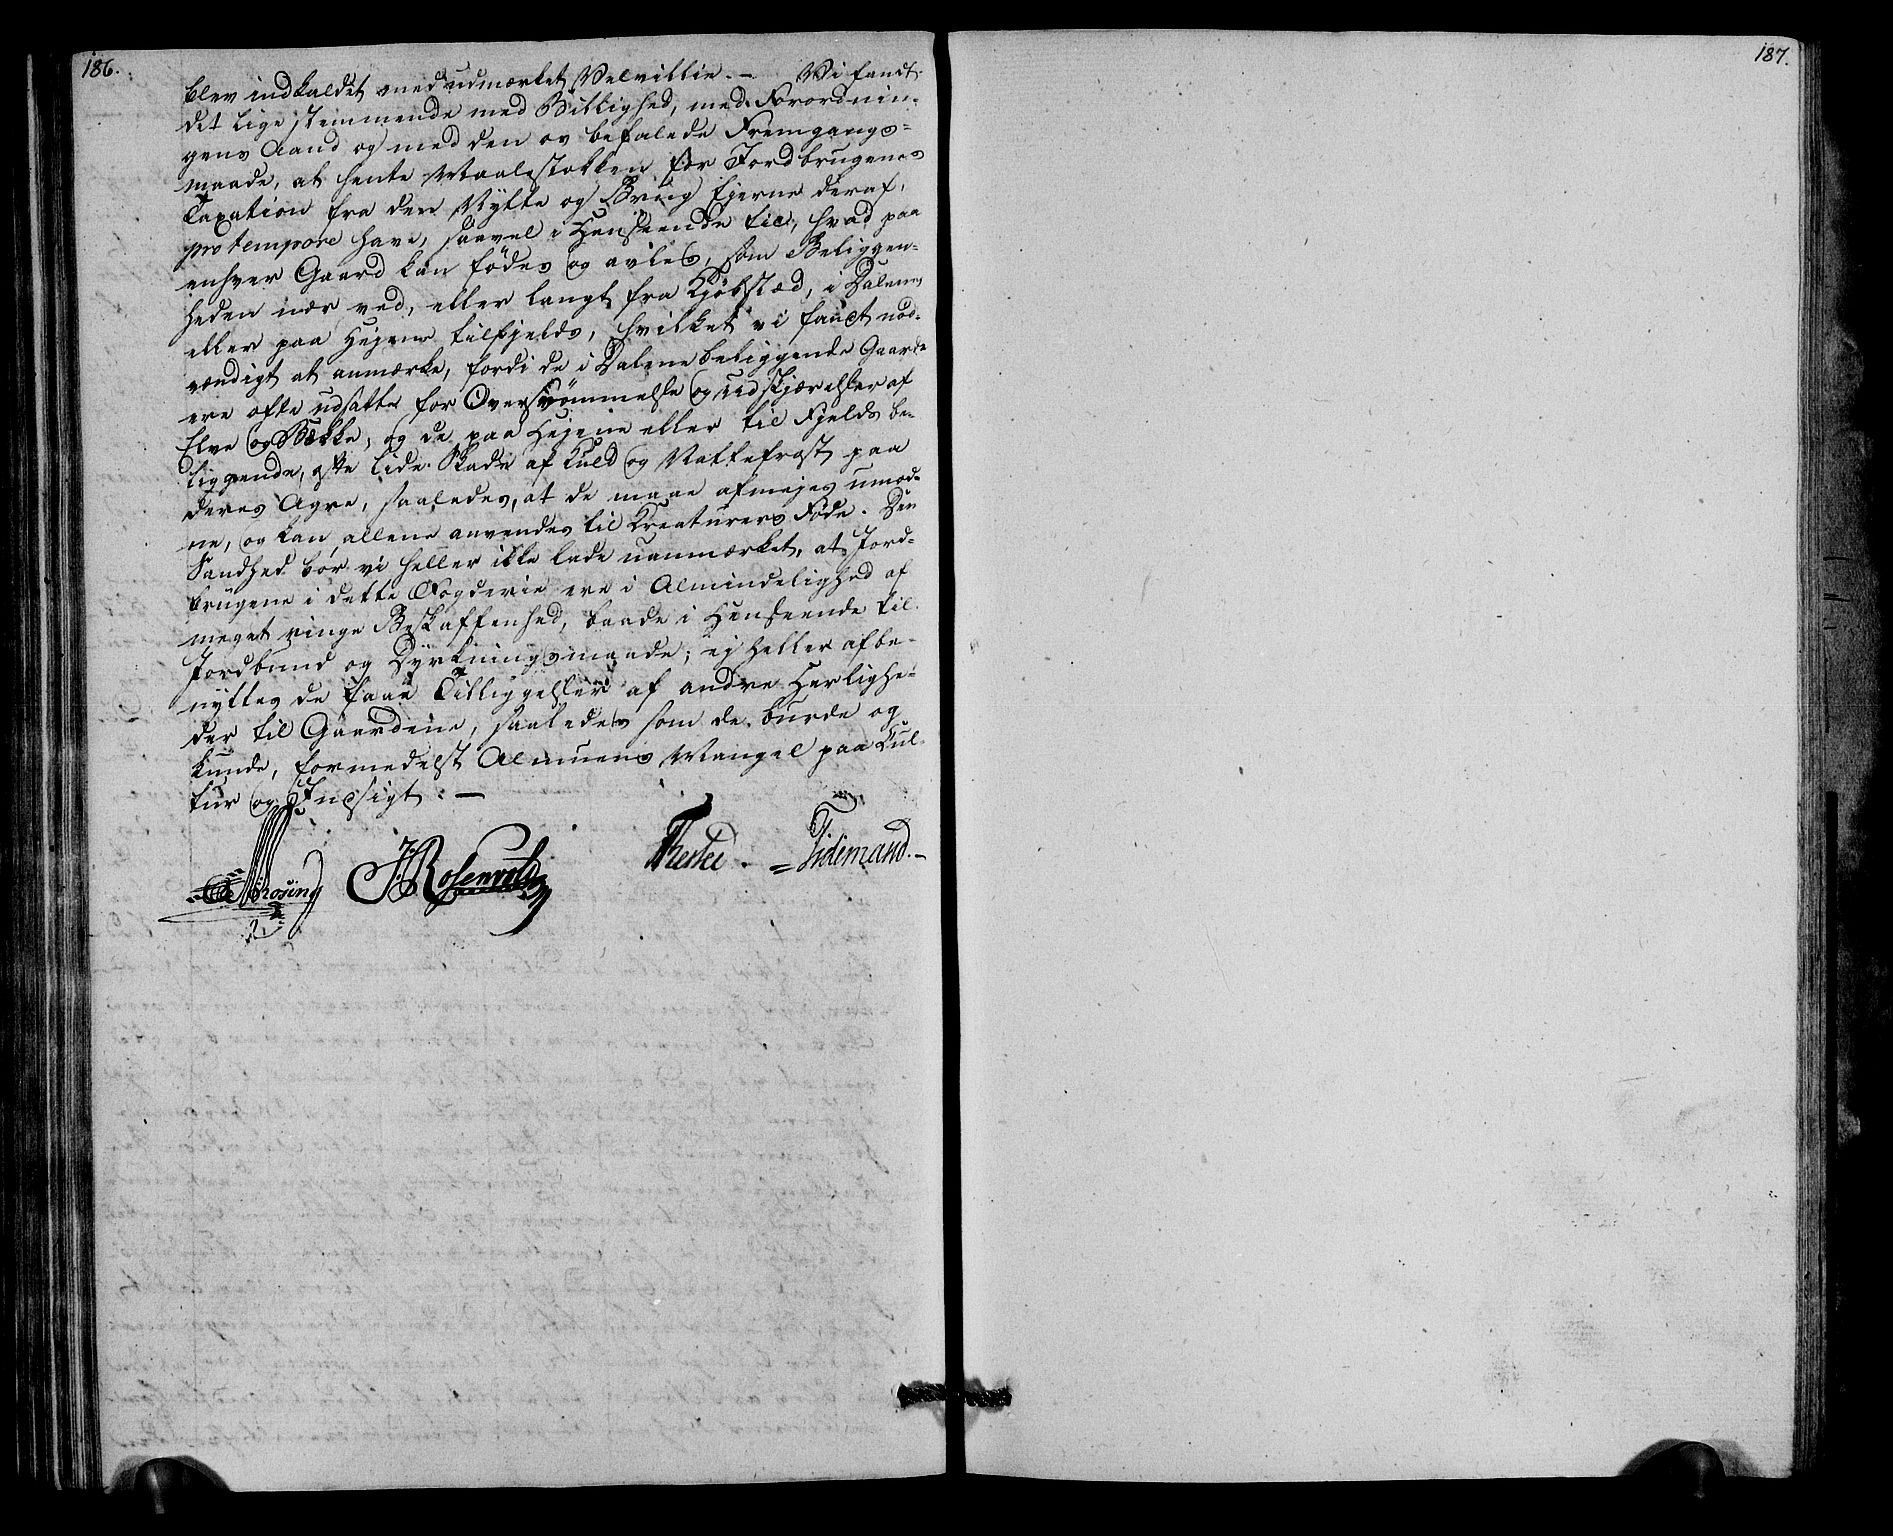 186.
blev indkaldet med udmærket Velvillie. — Vi fandt
det ligestemmende med Billighed, med Forordnin-
gens Aand og med den os befalede Fremgangs-
maade, at hente Maalestokken for Jordbrugenes
Taxation fra den Nytte og Brug Ejerne deraf,
pro tempore have, saavel i Henseende til, hvad paa
enhver Gaard kan fødes og avles, som Beliggen-
heden nær ved, eller langt fra Kjøbstæd, i Dalene
eller paa Højene tilfjelds, hvilket vi fandt nød-
vendigt at anmærke, fordi de i Dalene beliggende Gaarde
ere ofte udsatte for Oversvømmelse og udskjærelser af
Elve og Bække, og de paa Højene eller til Fjelds be-
liggende, ofte lide Skade af Kuld og Nattefrost paa
deres Agre, saaledes, at de maae afmejes umod-
ne, og kan allene anvendes til Kreaturers Føde. Den
Sandhed bør vi heller ikke lade uanmærket, at Jord-
brugene i dette Fogderie ere i Almindelighed af
meget ringe Beskaffenhed, baade i Henseende til
Jordbund og Dyrkningsmaade; ej heller afbe-
nyttes de faae Tilliggelser af andre Herlighe-
der til Gaardene, saaledes som de burde og
kunde, formedelst Almuens Mangel paa Cul-
tur og Indsigt. —
J. Rosenvold
Tidemand. —
187.